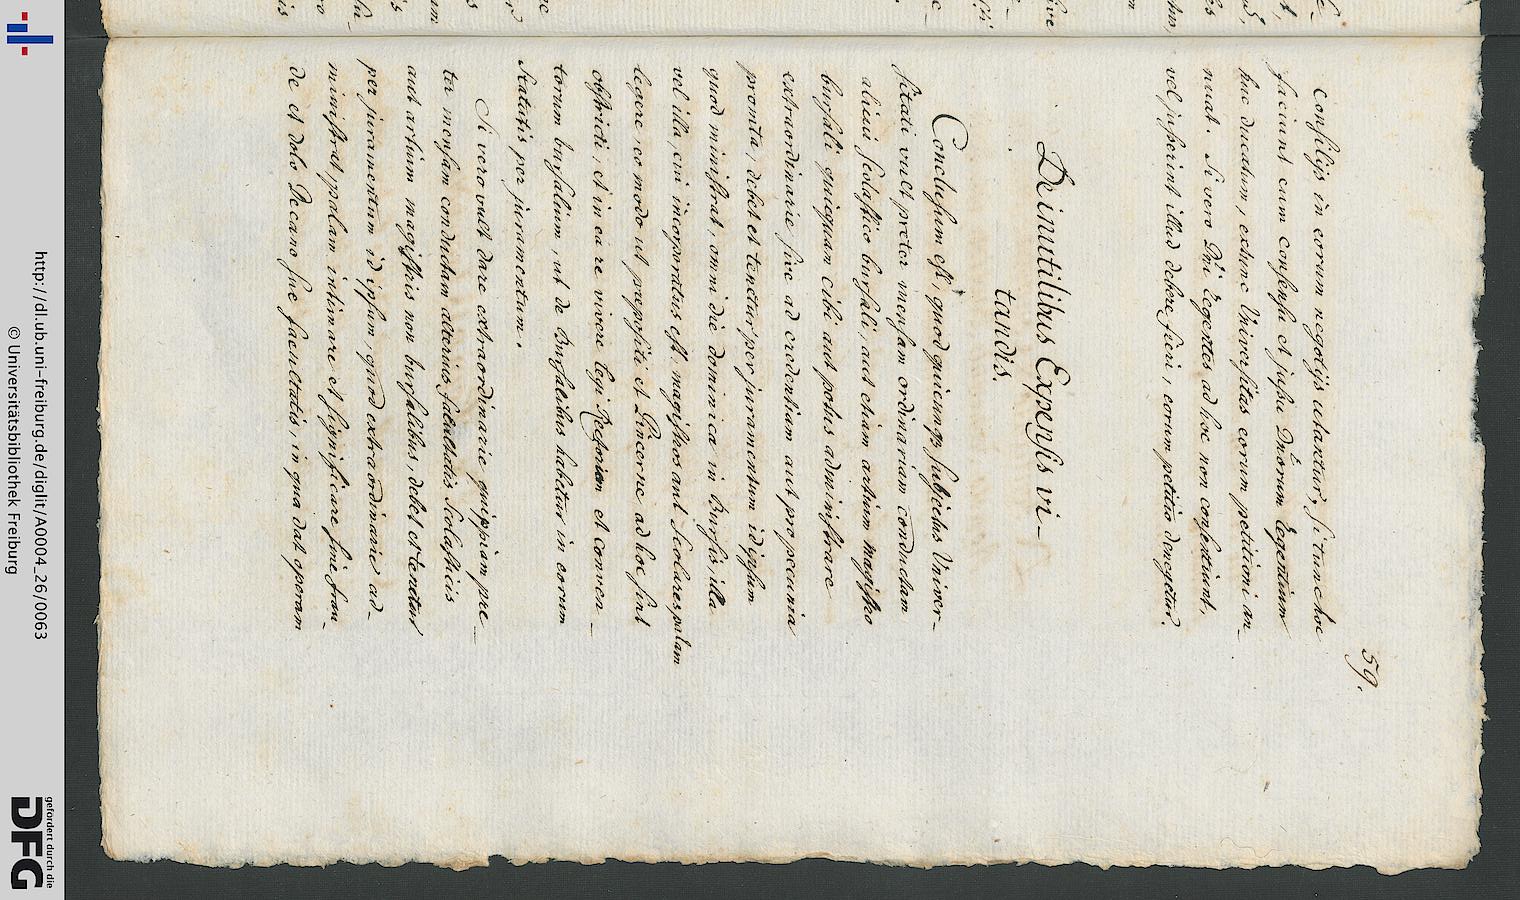 59.
consilijs in eorum negotijs utantur, si tunc hoc
faciunt cum consensu et jussu Dnorum Regentium
huc ducatum, extunc Universitas eorum petitioni an-
nuat. Si vero Dni Regentes ad hoc non consentiunt,
vel jusserint illud debere fieri, eorum petitio denegetur.
De inutilibus Expensis vi-
tandis.
Conclusum est, quod quicunque subjectus Univer-
sitati vult preter mensam ordinariam conductam
alicui scolastico bursali, aut etiam artium magistro
bursali quicquam cibi aut potus administrare
extraordinarie sive ad credentiam aut pro pecunia
promta, debet et tenetur per juramentum id ipsum
quod ministrat, omni die dominica in Bursis illa
vel illa, cui incorporatus est, magistros aut Scolares palam
legere, eo modo ut prepositi et Pincerne ad hoc sint
obstricti, et in ea re vivere legi Rectorum et conven-
torum bursalium, ut de Bursalibus habetur in eorum
statutis per juramentum.
Si vero vult dare extraordinarie quippiam pre-
ter mensam conductam alterius facultatis Scolasticis
aut artium magistris non bursalibus, debet et tenetur
per juramentum id ipsum, quod extraordinarie ad-
ministrat, palam intimare et significare sine frau-
de et dolo Decano sue facultatis, in qua dat operam
http://dl.ub.uni-freiburg.de/diglit/A0004_26/0063
© Universitätsbibliothek Freiburg
gefördert durch die
DFG